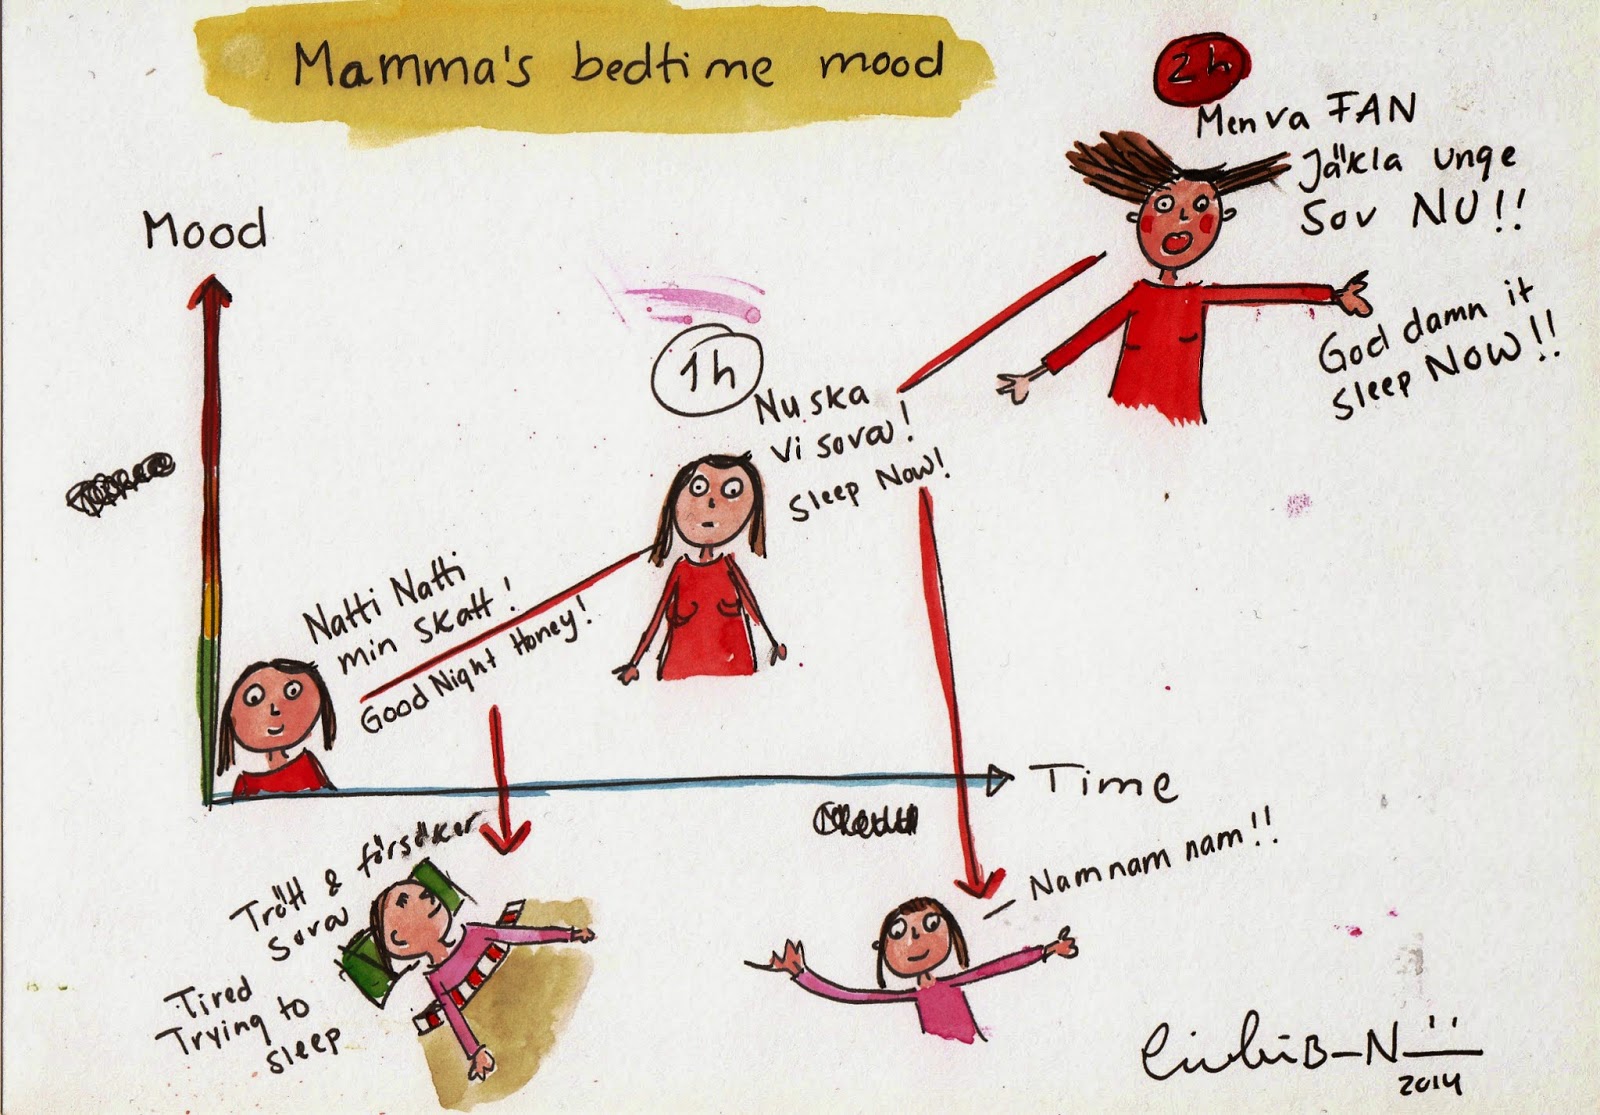 Mamma's bedtime mood
2h
Men va FAN
Jäkla unge
Sov NU!!
God damn it
Sleep NOW!!
Mood
1h
Nu ska
Vi sova!
Sleep Now!
Natti Natti
min skatt!
Good Night Honey!
Time
Trött & försöker
Sova
Tired
Trying to
Sleep
– Nam nam nam!!
2014